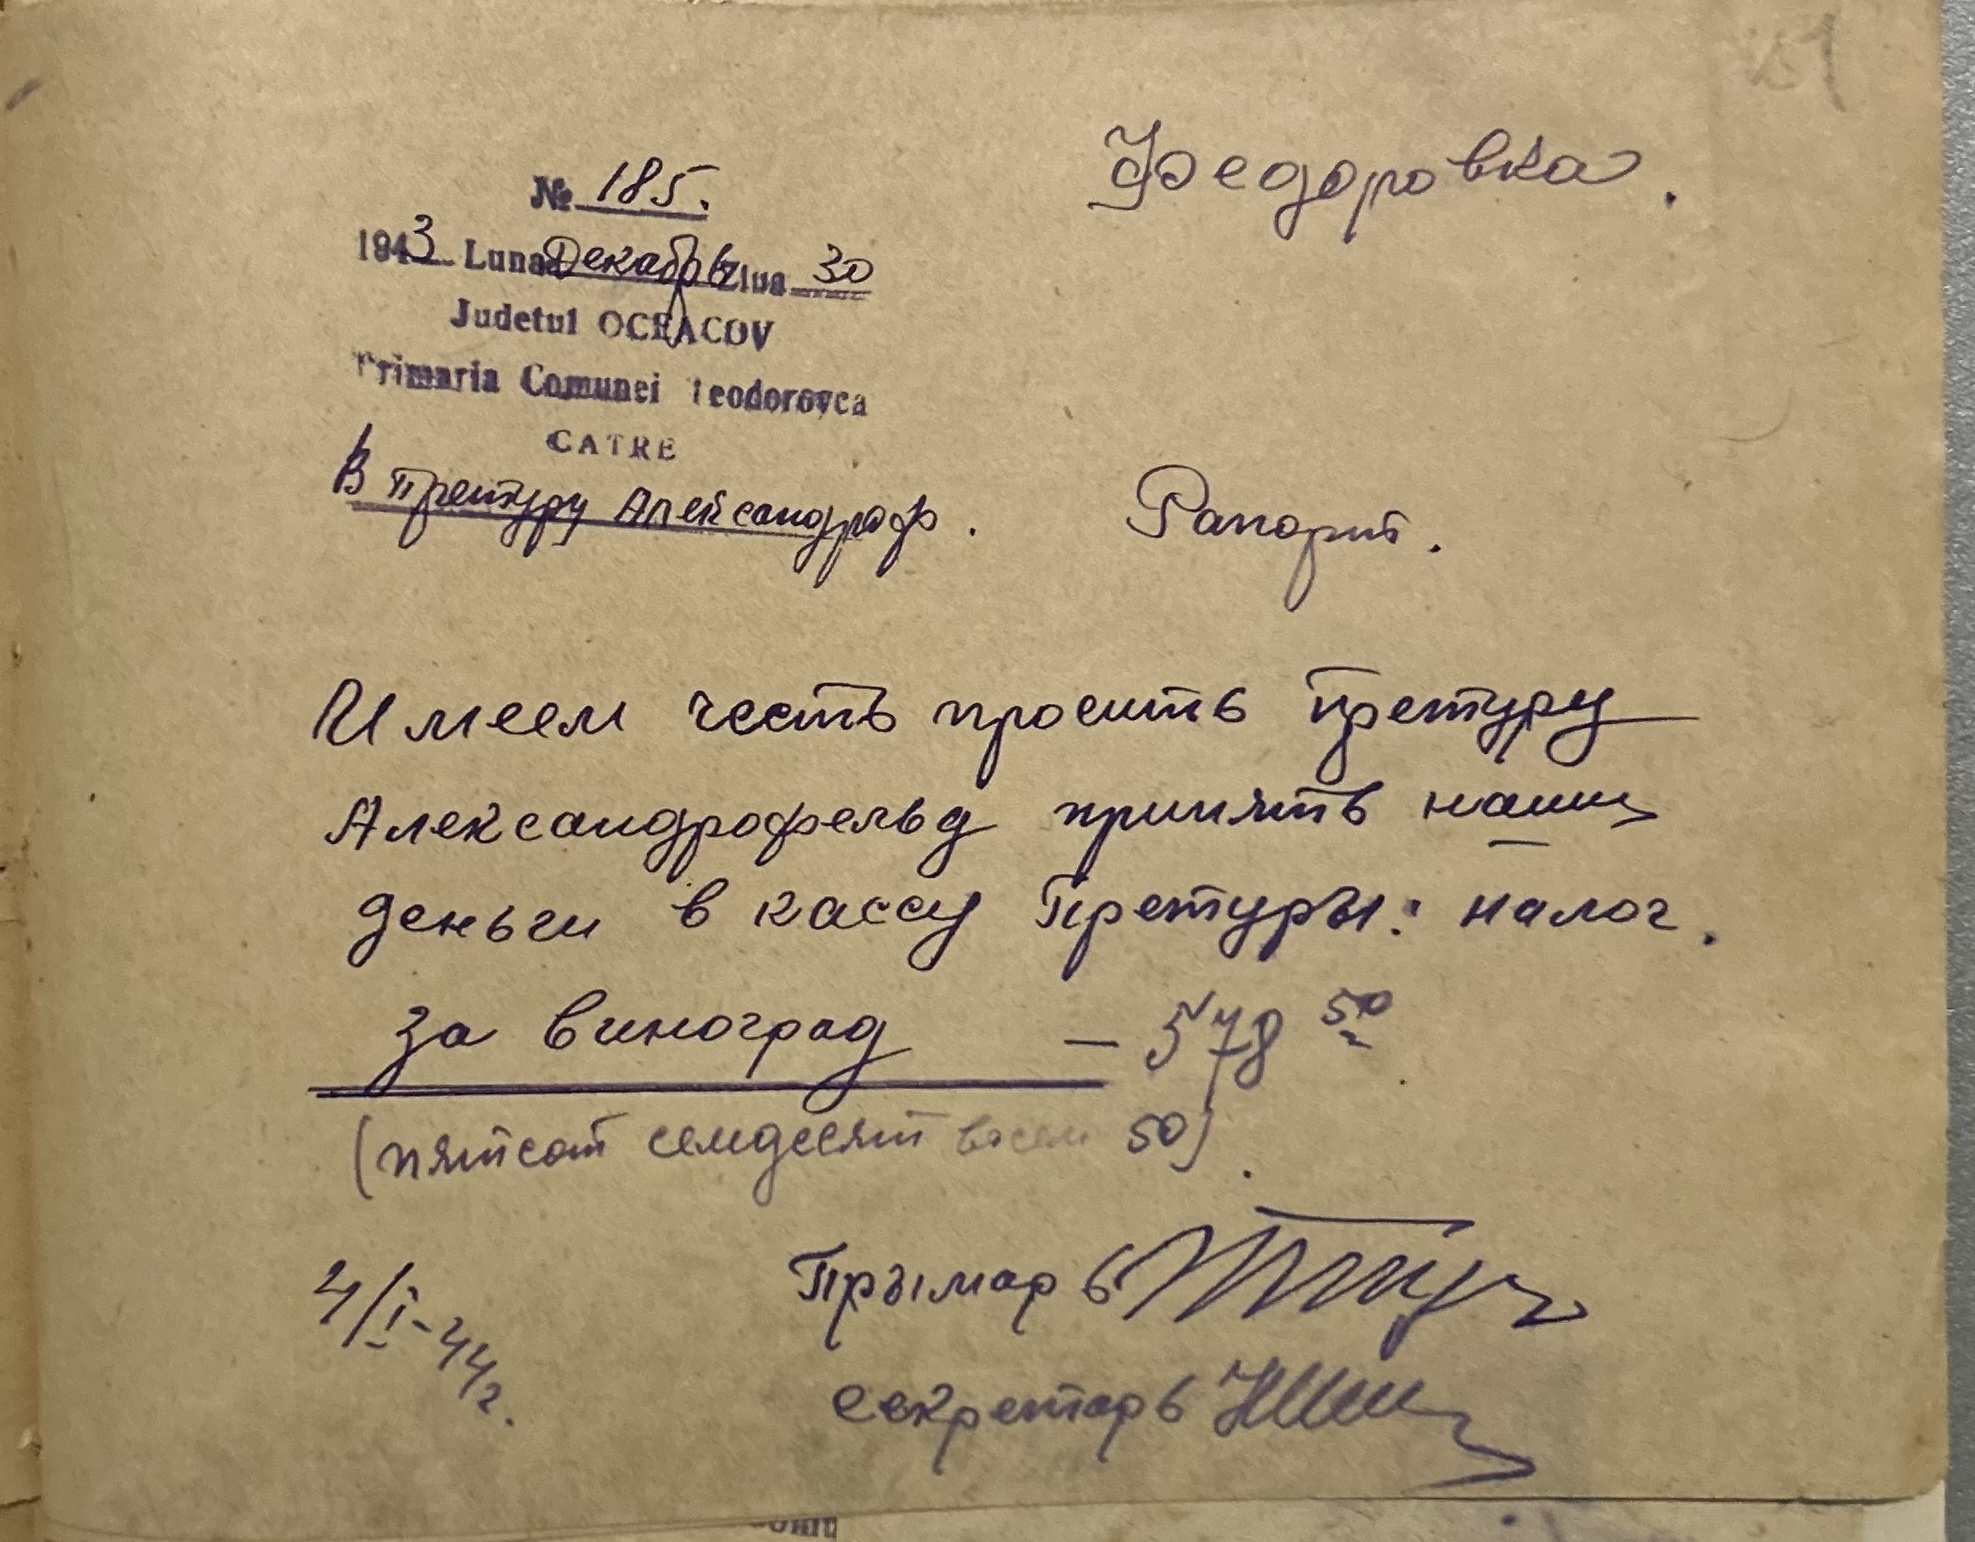 Феодоровка.
№ 185.
1943 Luna Декабрь Ziua 30
Judetul OCEACOV
Primaria Comunei Teodorovca
CATRE
В Претуру Александроф.
Рапорт.
Имеем честь просить Претуру
Александрофельд принять наши
деньги в кассу Претуры: налог.
за виноград – 578 50
(пятсот семдесят восем 50).
Прымарь
4/I-44 г.
Секретарь